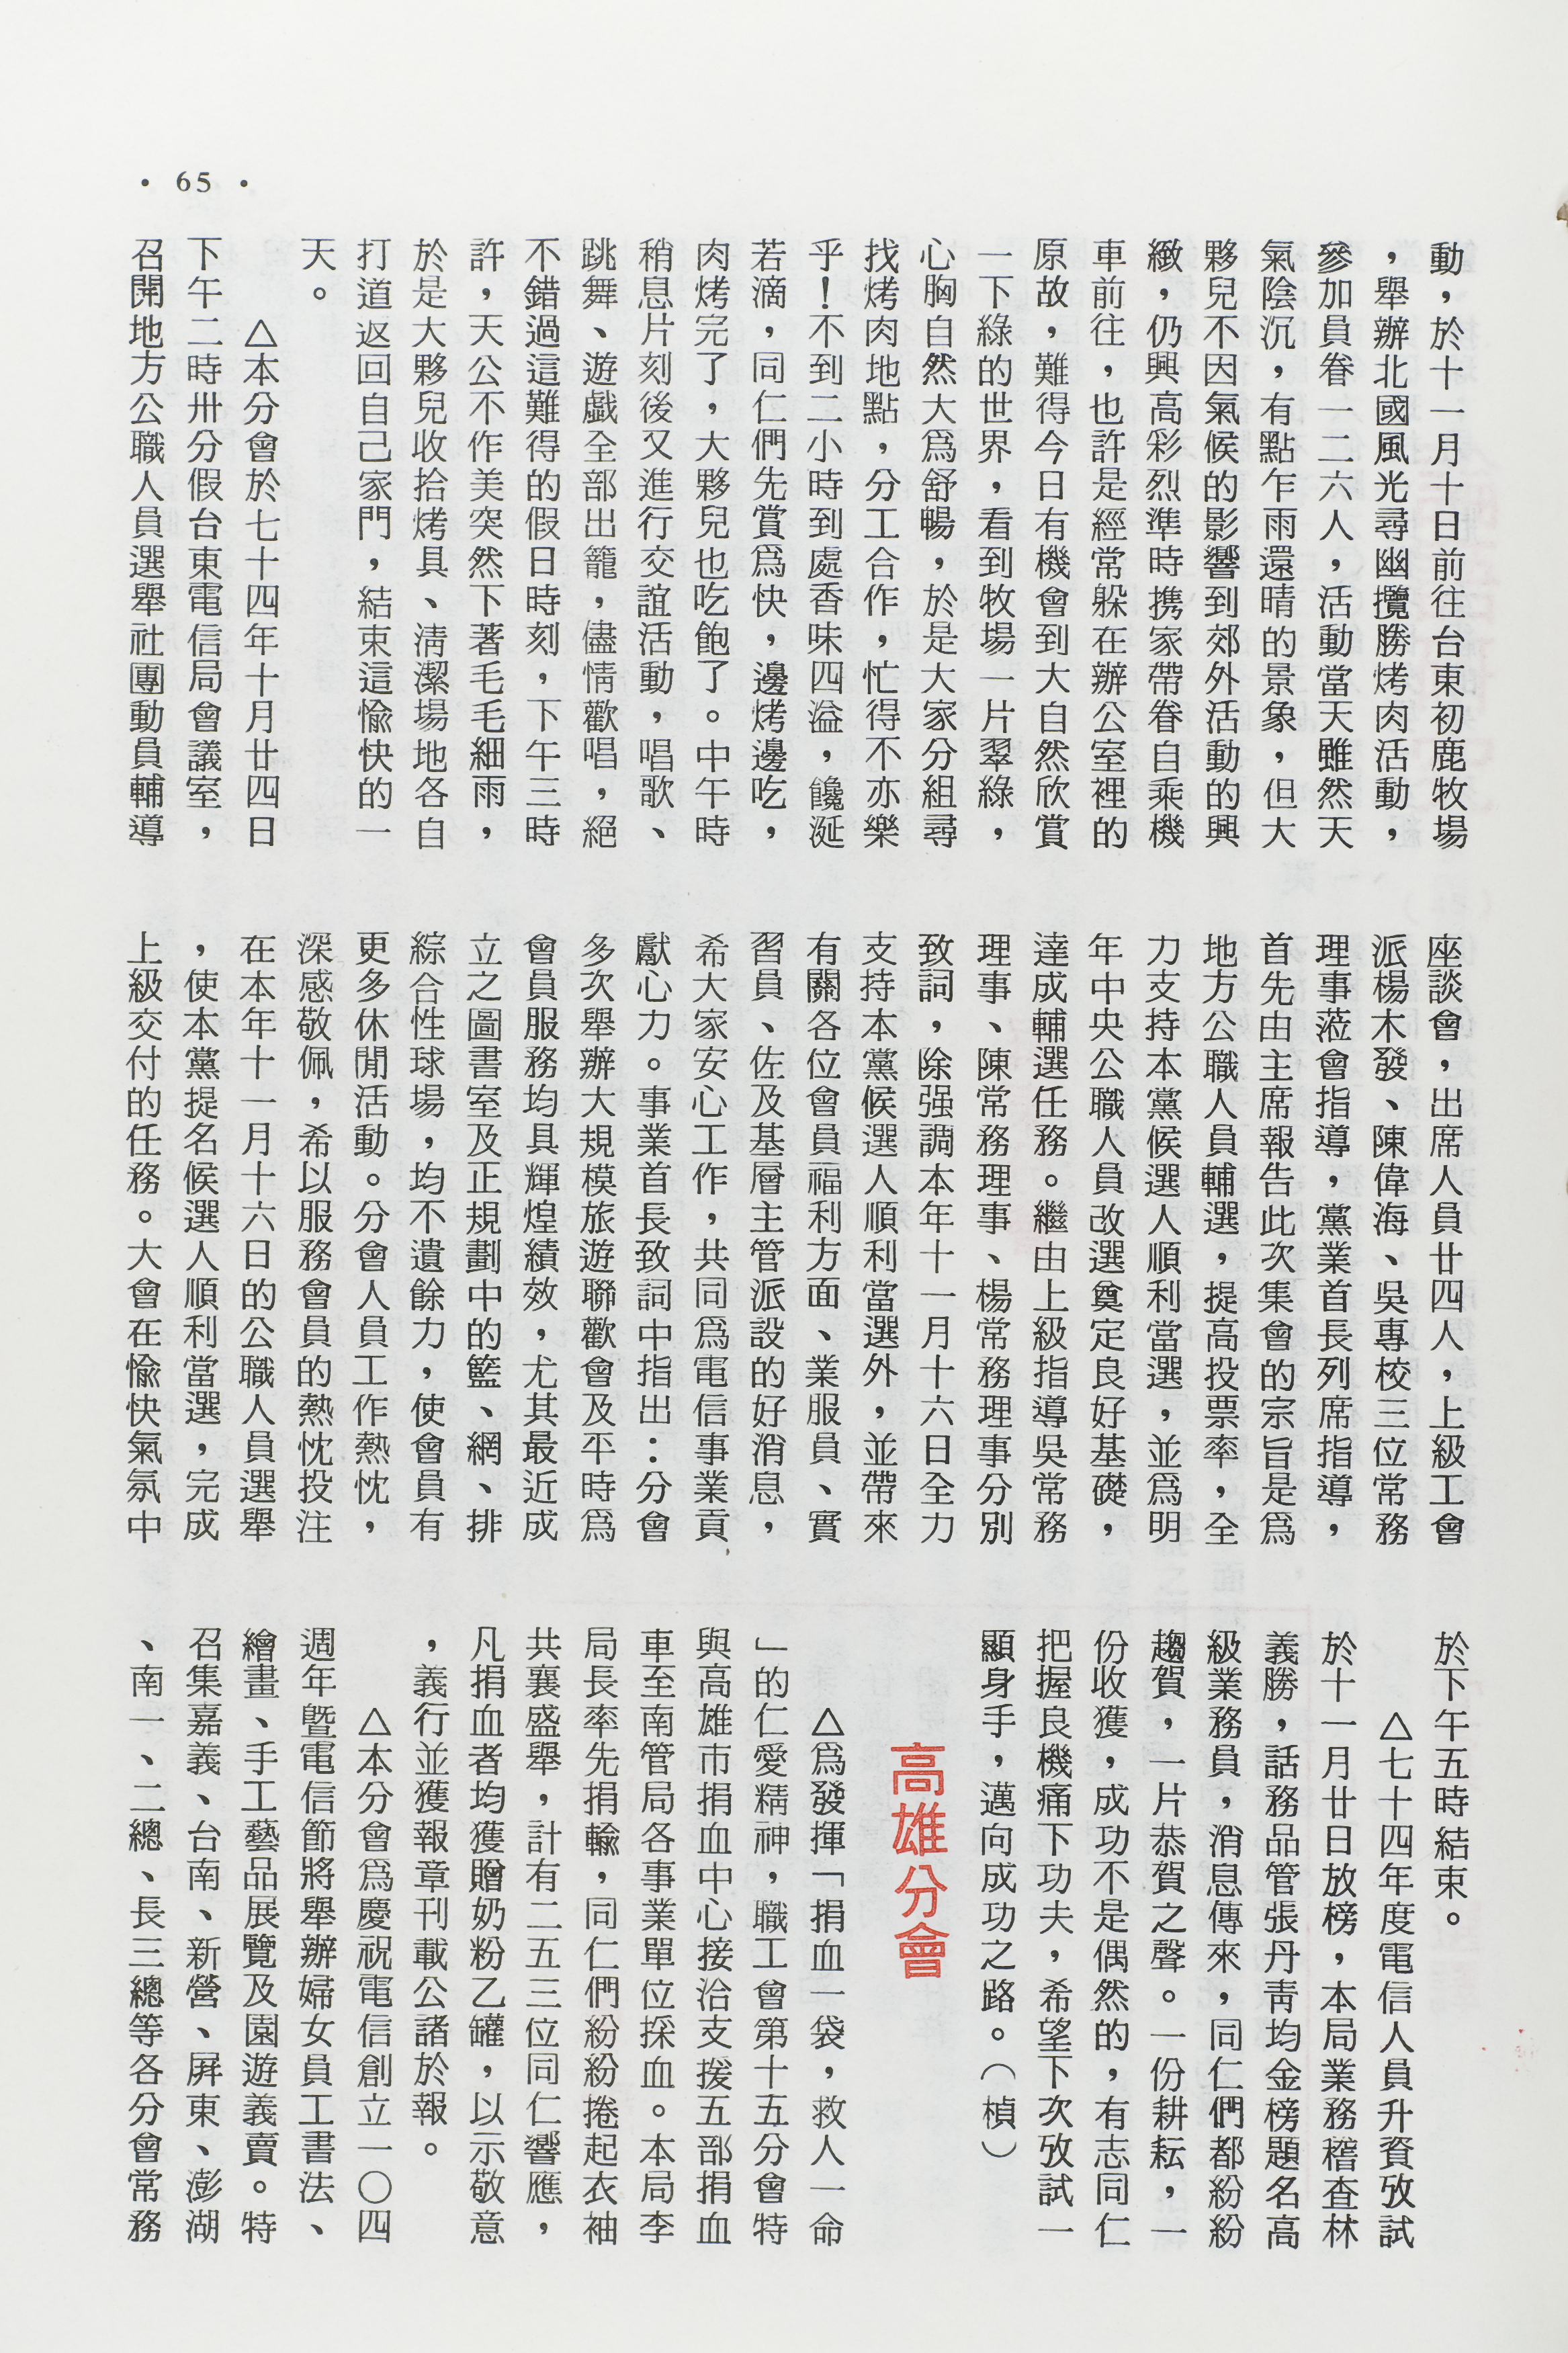 • 65 •
動，於十一月十日前往台東初鹿牧場
，舉辦北國風光尋幽攬勝烤肉活動，
參加員眷一二六人，活動當天雖然天
氣陰沉，有點乍雨還晴的景象，但大
夥兒不因氣候的影響到郊外活動的興
緻，仍興高彩烈準時携家帶眷自乘機
車前往，也許是經常躲在辦公室裡的
原故，難得今日有機會到大自然欣賞
一下綠的世界，看到牧場一片翠綠，
心胸自然大爲舒暢，於是大家分組尋
找烤肉地點，分工合作，忙得不亦樂
乎！不到二小時到處香味四溢，饞涎
若滴，同仁們先賞爲快，邊烤邊吃，
肉烤完了，大夥兒也吃飽了。中午時
稍息片刻後又進行交誼活動，唱歌、
跳舞、遊戲全部出籠，儘情歡唱，絕
不錯過這難得的假日時刻，下午三時
許，天公不作美突然下著毛毛細雨，
於是大夥兒收拾烤具、淸潔場地各自
打道返回自己家門，結束這愉快的一
天。
△本分會於七十四年十月廿四日
下午二時卅分假台東電信局會議室，
召開地方公職人員選舉社團動員輔導
座談會，出席人員廿四人，上級工會
派楊木發、陳偉海、吳專校三位常務
理事蒞會指導，黨業首長列席指導，
首先由主席報告此次集會的宗旨是爲
地方公職人員輔選，提高投票率，全
力支持本黨候選人順利當選，並爲明
年中央公職人員改選奠定良好基礎，
達成輔選任務。繼由上級指導吳常務
理事、陳常務理事、楊常務理事分別
致詞，除强調本年十一月十六日全力
支持本黨候選人順利當選外，並帶來
有關各位會員福利方面、業服員、實
習員、佐及基層主管派設的好消息，
希大家安心工作，共同爲電信事業貢
獻心力。事業首長致詞中指出：分會
多次舉辦大規模旅遊聯歡會及平時爲
會員服務均具輝煌績效，尤其最近成
立之圖書室及正規劃中的籃、網、排
綜合性球場，均不遺餘力，使會員有
更多休閒活動。分會人員工作熱忱，
深感敬佩，希以服務會員的熱忱投注
在本年十一月十六日的公職人員選舉
，使本黨提名候選人順利當選，完成
上級交付的任務。大會在愉快氣氛中
於下午五時結束。
△七十四年度電信人員升資攷試
於十一月廿日放榜，本局業務稽查林
義勝，話務品管張丹靑均金榜題名高
級業務員，消息傳來，同仁們都紛紛
趨賀，一片恭賀之聲。一份耕耘，一
份收獲，成功不是偶然的，有志同仁
把握良機痛下功夫，希望下次攷試一
顯身手，邁向成功之路。（楨）
高雄分會
△爲發揮「捐血一袋，救人一命
」的仁愛精神，職工會第十五分會特
與高雄市捐血中心接洽支援五部捐血
車至南管局各事業單位採血。本局李
局長率先捐輸，同仁們紛紛捲起衣袖
共襄盛舉，計有二五三位同仁響應，
凡捐血者均獲贈奶粉乙罐，以示敬意
，義行並獲報章刊載公諸於報。
△本分會爲慶祝電信創立一〇四
週年暨電信節將舉辦婦女員工書法、
繪畫、手工藝品展覽及園遊義賣。特
召集嘉義、台南、新營、屛東、澎湖
、南一、二總、長三總等各分會常務